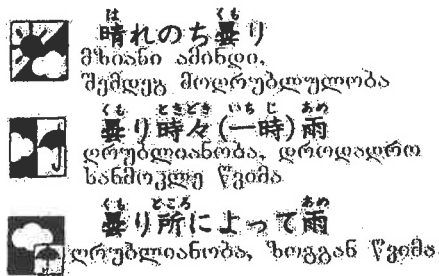 は くも
晴れのち曇り
მზიანი ამინდი,
შემდეგ მოღრუბლულობა
くも ときどき いちじ あめ
曇り時々(一時)雨
ღრუბლიანობა, დროდადრო
ხანმოკლე წვიმა
くも ところ あめ
曇り所によって雨
ღრუბლიანობა, ზოგგან წვიმა